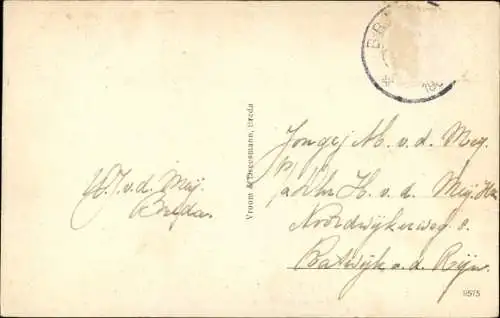 BR
W. J. v. d. Meij.
Breda.
Vroom & Dreesmann, Breda
Jongej M. v. d. Meij.
p/a H. v. d. Meij.
Noordwijkerweg
Katwijk a. d. Rijn.